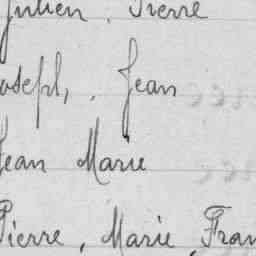 Julien, Pierre
Joseph, Jean
Jean Marie
Pierre, Marie, Fran